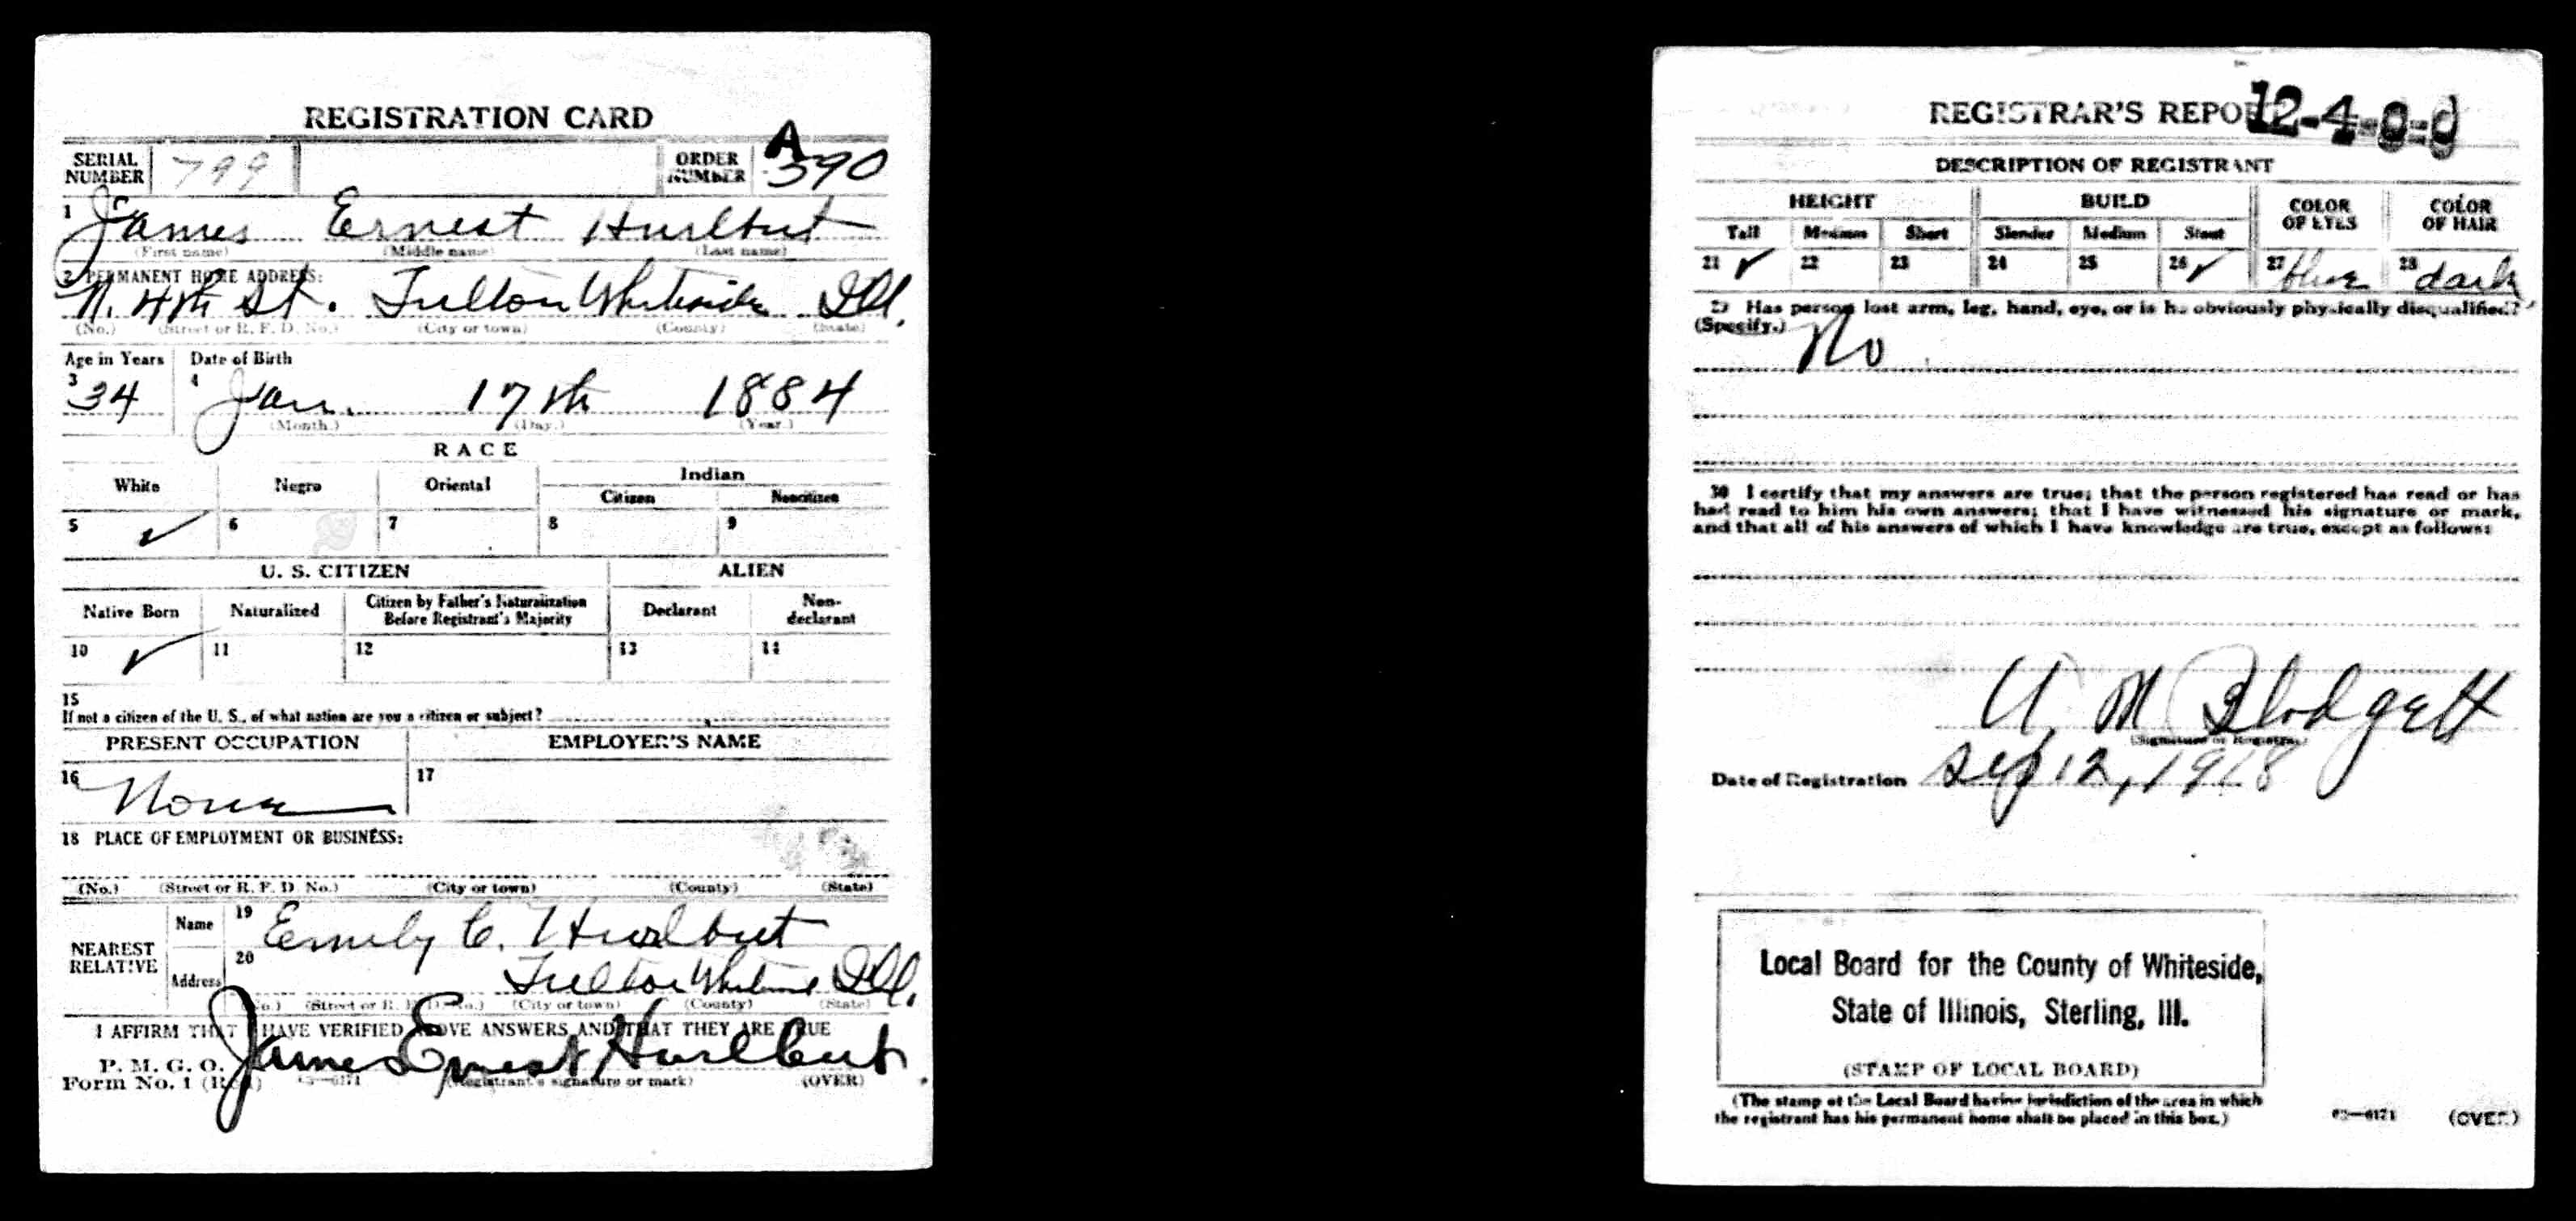 REGISTRATION CARD
SERIAL NUMBER 799 ORDER NUMBER A 390
1 James Ernest Hurlbut
(First name) (Middle name) (Last name)
2 PERMANENT HOME ADDRESS:
N. 4th St. Fulton Whiteside Ill.
(No.) (Street or R. F. D. No.) (City or town) (County) (State)
Age in Years Date of Birth
3 34 4 Jan. 17th 1884
(Month.) (Day.) (Year.)
RACE
White Negro Oriental Indian
Citizen Noncitizen
5 ✓ 6 7 8 9
U. S. CITIZEN ALIEN
Native Born Naturalized Citizen by Father's Naturalization Before Registrant's Majority Declarant Non-declarant
10 ✓ 11 12 13 14
15
If not a citizen of the U. S., of what nation are you a citizen or subject?
PRESENT OCCUPATION EMPLOYER'S NAME
16 None 17
18 PLACE OF EMPLOYMENT OR BUSINESS:
(No.) (Street or R. F. D. No.) (City or town) (County) (State)
NEAREST RELATIVE Name 19 Emily C. Hurlbut
Address 20 Fulton Whiteside Ill.
(No.) (Street or R. F. D. No.) (City or town) (County) (State)
I AFFIRM THAT I HAVE VERIFIED ABOVE ANSWERS AND THAT THEY ARE TRUE
P. M. G. O.
Form No. 1 (Red) James Ernest Hurlbut
63-6171 (Registrant's signature or mark) (OVER)
REGISTRAR'S REPORT 12-4-0-0
DESCRIPTION OF REGISTRANT
HEIGHT BUILD COLOR OF EYES COLOR OF HAIR
Tall Medium Short Slender Medium Stout
21 ✓ 22 23 24 25 26 ✓ 27 blue 28 dark
29 Has person lost arm, leg, hand, eye, or is he obviously physically disqualified?
(Specify.) No
30 I certify that my answers are true; that the person registered has read or has
had read to him his own answers; that I have witnessed his signature or mark,
and that all of his answers of which I have knowledge are true, except as follows:
A. M. Blodgett
(Signature of Registrar)
Date of Registration Sep 12, 1918
Local Board for the County of Whiteside,
State of Illinois, Sterling, Ill.
(STAMP OF LOCAL BOARD)
(The stamp of the Local Board having jurisdiction of the area in which
the registrant has his permanent home shall be placed in this box.)
63-6171 (OVER)